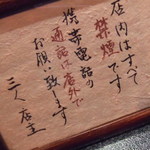 店内はすべて
禁煙です
携帯電話の
通話は店外で
お願い致します
店主